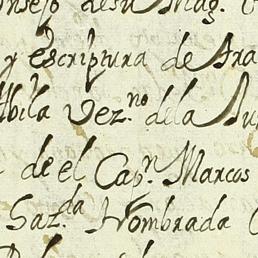 Consejo de su Mag.
y escriptura de Ara
Abila Vez.no de la
de el Cap.n Marcos
Haz.da Nombrada